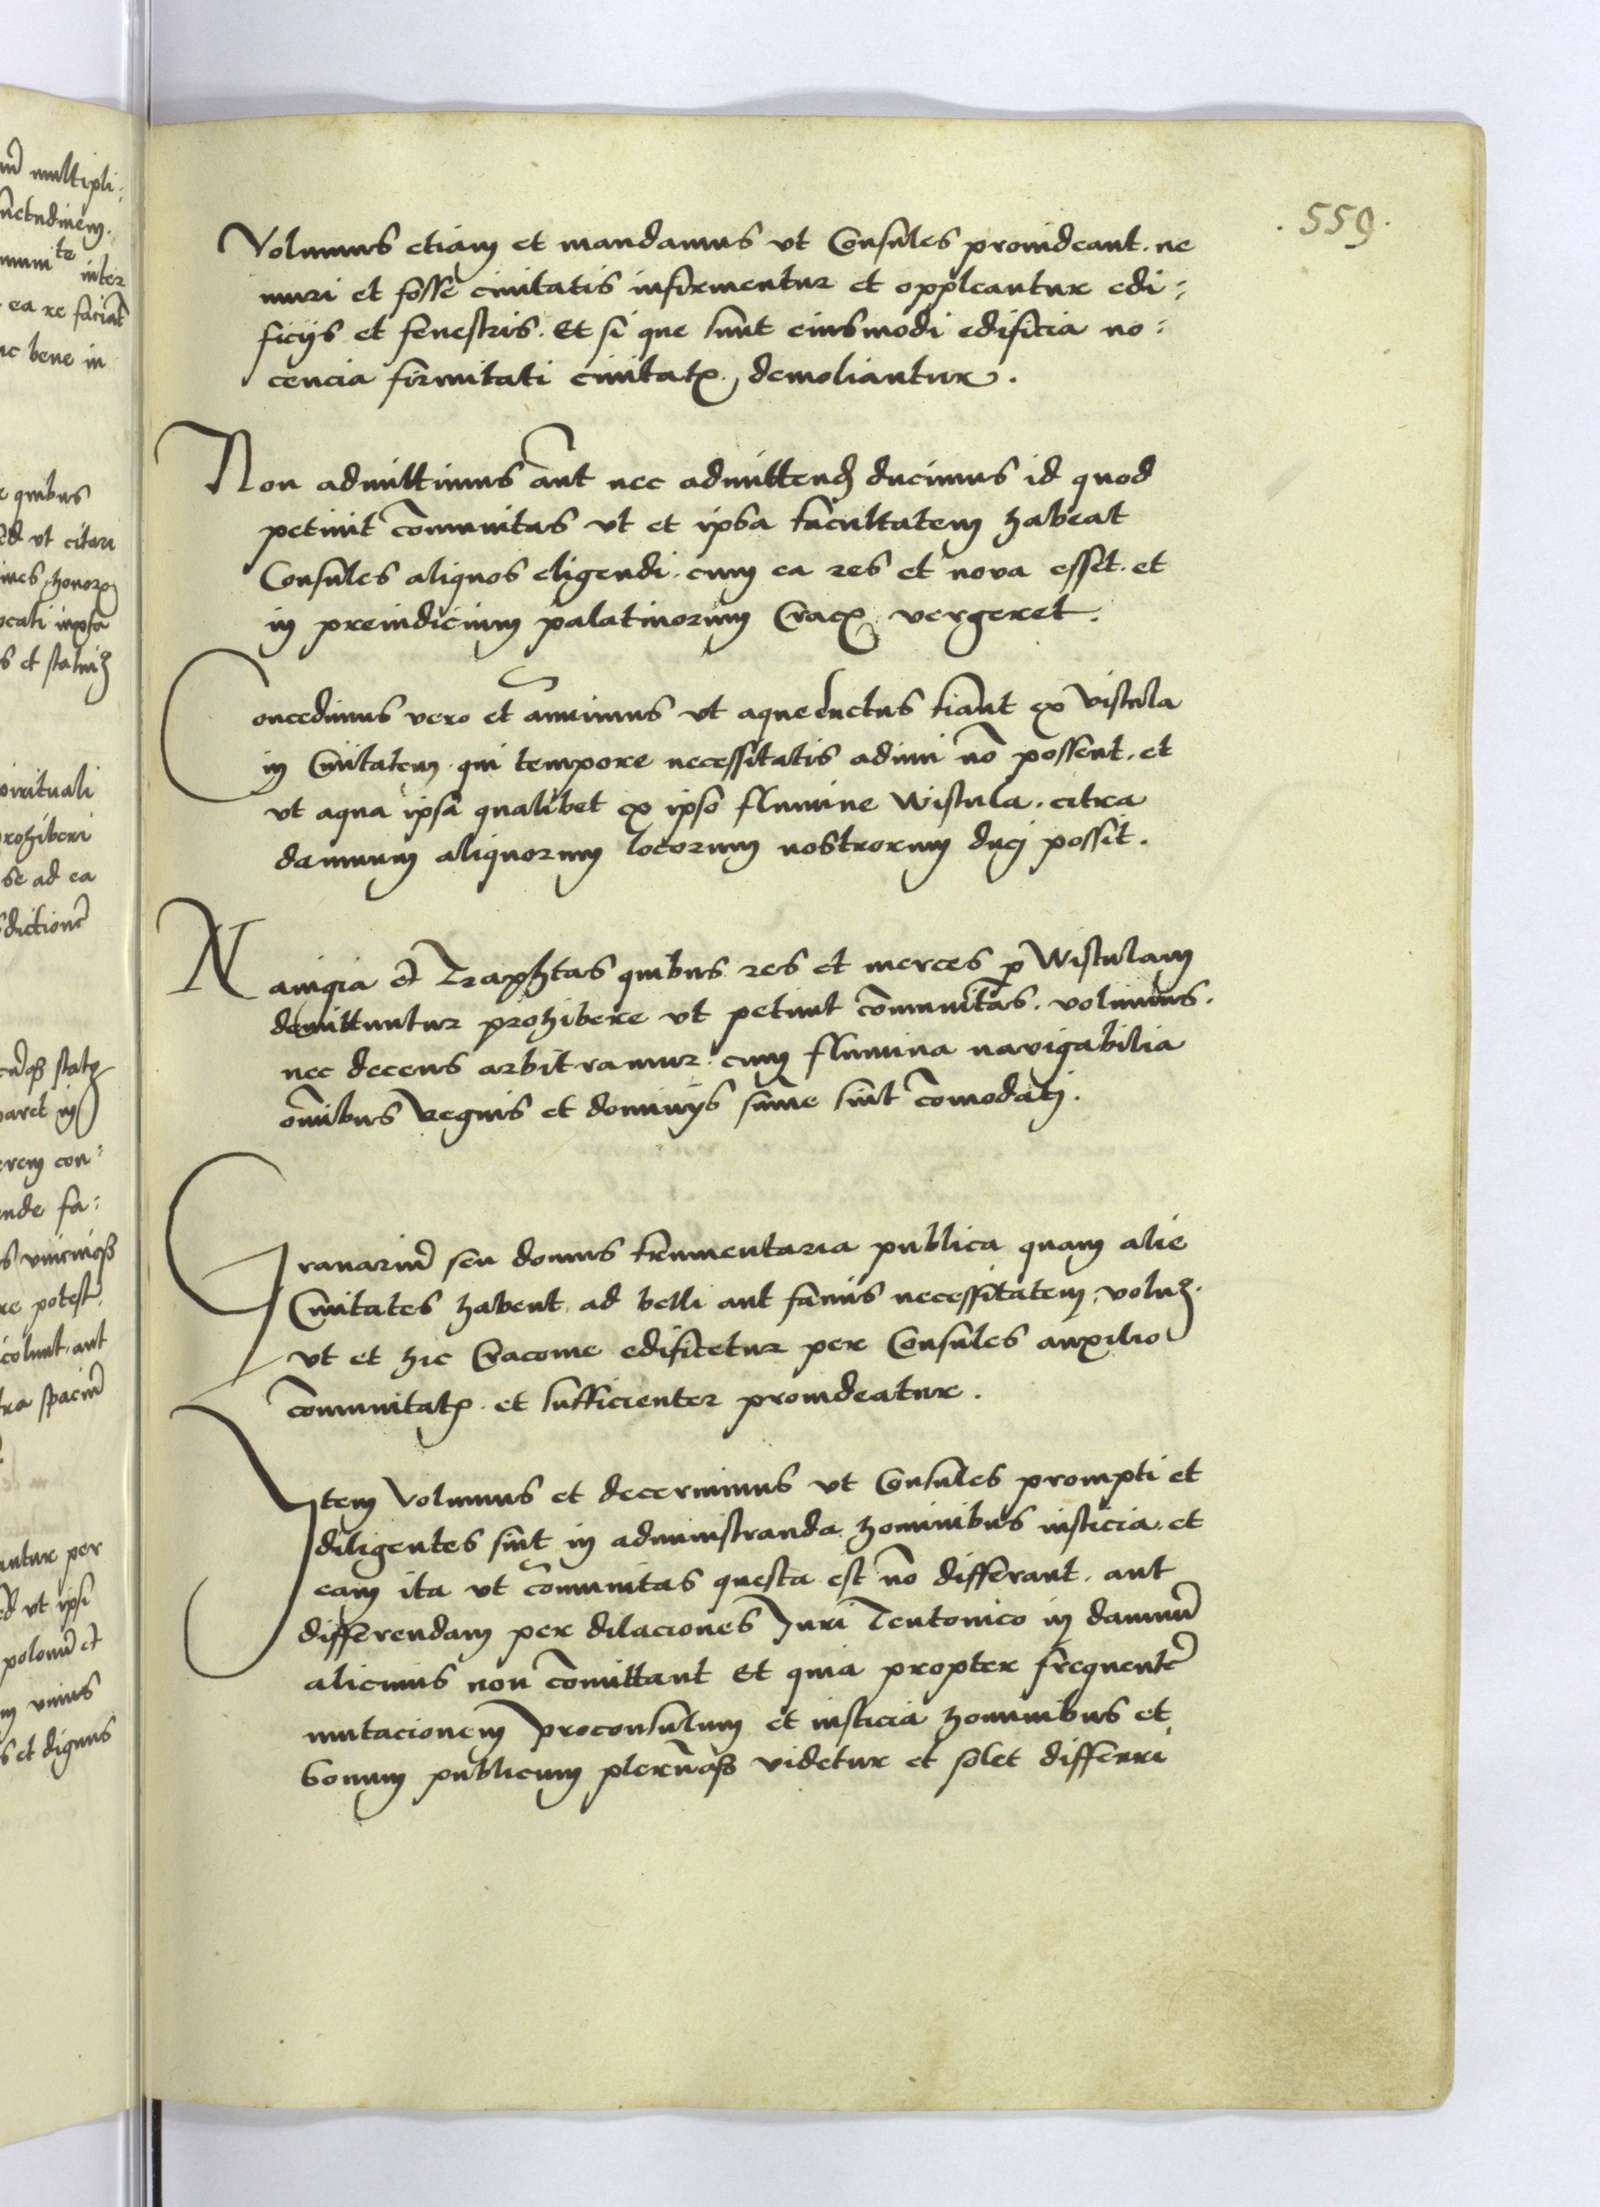 . 559.
Volumus etiam et mandamus ut Consules provideant. ne
muri et fosse civitatis infirmentur et oppleantur edi:
ficijs et fenestris. Et si que sunt eiusmodi edificia no:
cencia firmitati civitatꝭ, demoliantur.
Non admittimus aut nec admittendꝫ ducimus id quod
petivit cōmunitas ut et ipsa facultatem habeat
Consules aliquos eligendi. cum ea res et nova esset. et
in preiudicium palatinorum Cracꝭ vergeret.
Concedimus vero et ānuimus ut aqueductus fiant ex Vistula
in Civitatem. qui tempore necessitatis adimi nō possent. et
ut aqua ipsa qualibet ex ipso flumine Wistula. citra
damnum aliquorum locorum nostrorum duci possit.
Navigia et Traphtas quibus res et merces ꝑ Wistulam
demittuntur prohibere ut petiit cōmunitas. volumus.
nec decens arbitramur. cum flumina navigabilia
oībus Regnis et dominijs sūme sint cōmoditati.
Granariū seu domus frumentaria publica quam alie
Civitates habent ad belli aut famis necessitatem, volumꝫ.
ut et hic Cracovie edificetur per Consules auxilio
cōmunitatꝭ. et sufficienter provideatur.
Item Volumus et decernimus ut Consules prompti et
diligentes sint in administranda hominibus iusticia. et
eam ita ut cōmunitas questa est nō differant. aut
differendam per dilaciones Iuri Teutonico in damnū
alicuius non cōmittant Et quia propter frequentē
mutacionem proconsulum et iusticia hominibus et
bonum publicum plerūqꝫ videtur et solet differri